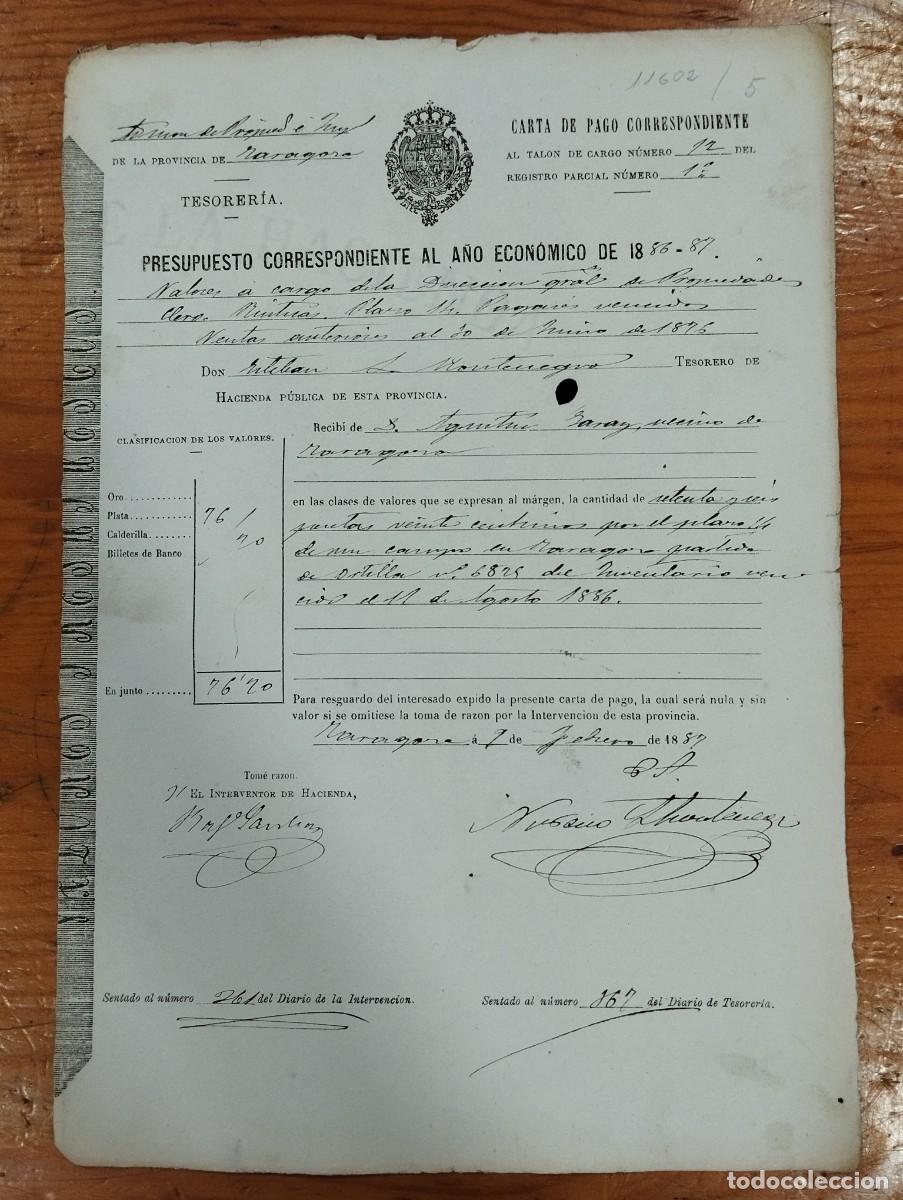 11602 / 5
DE LA PROVINCIA DE Zaragoza
TESORERÍA.
CARTA DE PAGO CORRESPONDIENTE
AL TALON DE CARGO NÚMERO 12 DEL
REGISTRO PARCIAL NÚMERO 1º
PRESUPUESTO CORRESPONDIENTE AL AÑO ECONÓMICO DE 1886-87.
Valores á cargo de la Direccion gral de Propiedades
Clero. Rústicas. Plazo 14. Pagarés vencidos
Ventas anteriores al 30 de Junio de 1876
DON Esteban S. Montenegro TESORERO DE
HACIENDA PÚBLICA DE ESTA PROVINCIA.
Recibí de D. Agustin Garay, vecino de
Zaragoza
CLASIFICACION DE LOS VALORES.
Oro
Plata 76
Calderilla 20
Billetes de Banco
En junto 76'20
en las clases de valores que se expresan al márgen, la cantidad de setenta y seis
pesetas veinte centimos por el plazo 14
de un campo en Zaragoza partida
de Ortilla nº 6825 del Inventario ven-
cido el 11 de Agosto 1886.
Para resguardo del interesado expido la presente carta de pago, la cual será nula y sin
valor si se omitiese la toma de razon por la Intervencion de esta provincia.
Zaragoza á 7 de Febrero de 1887
Tomé razon.
EL INTERVENTOR DE HACIENDA,
Sentado al número 261 del Diario de la Intervencion.
Sentado al número 367 del Diario de Tesorería.
todocoleccion